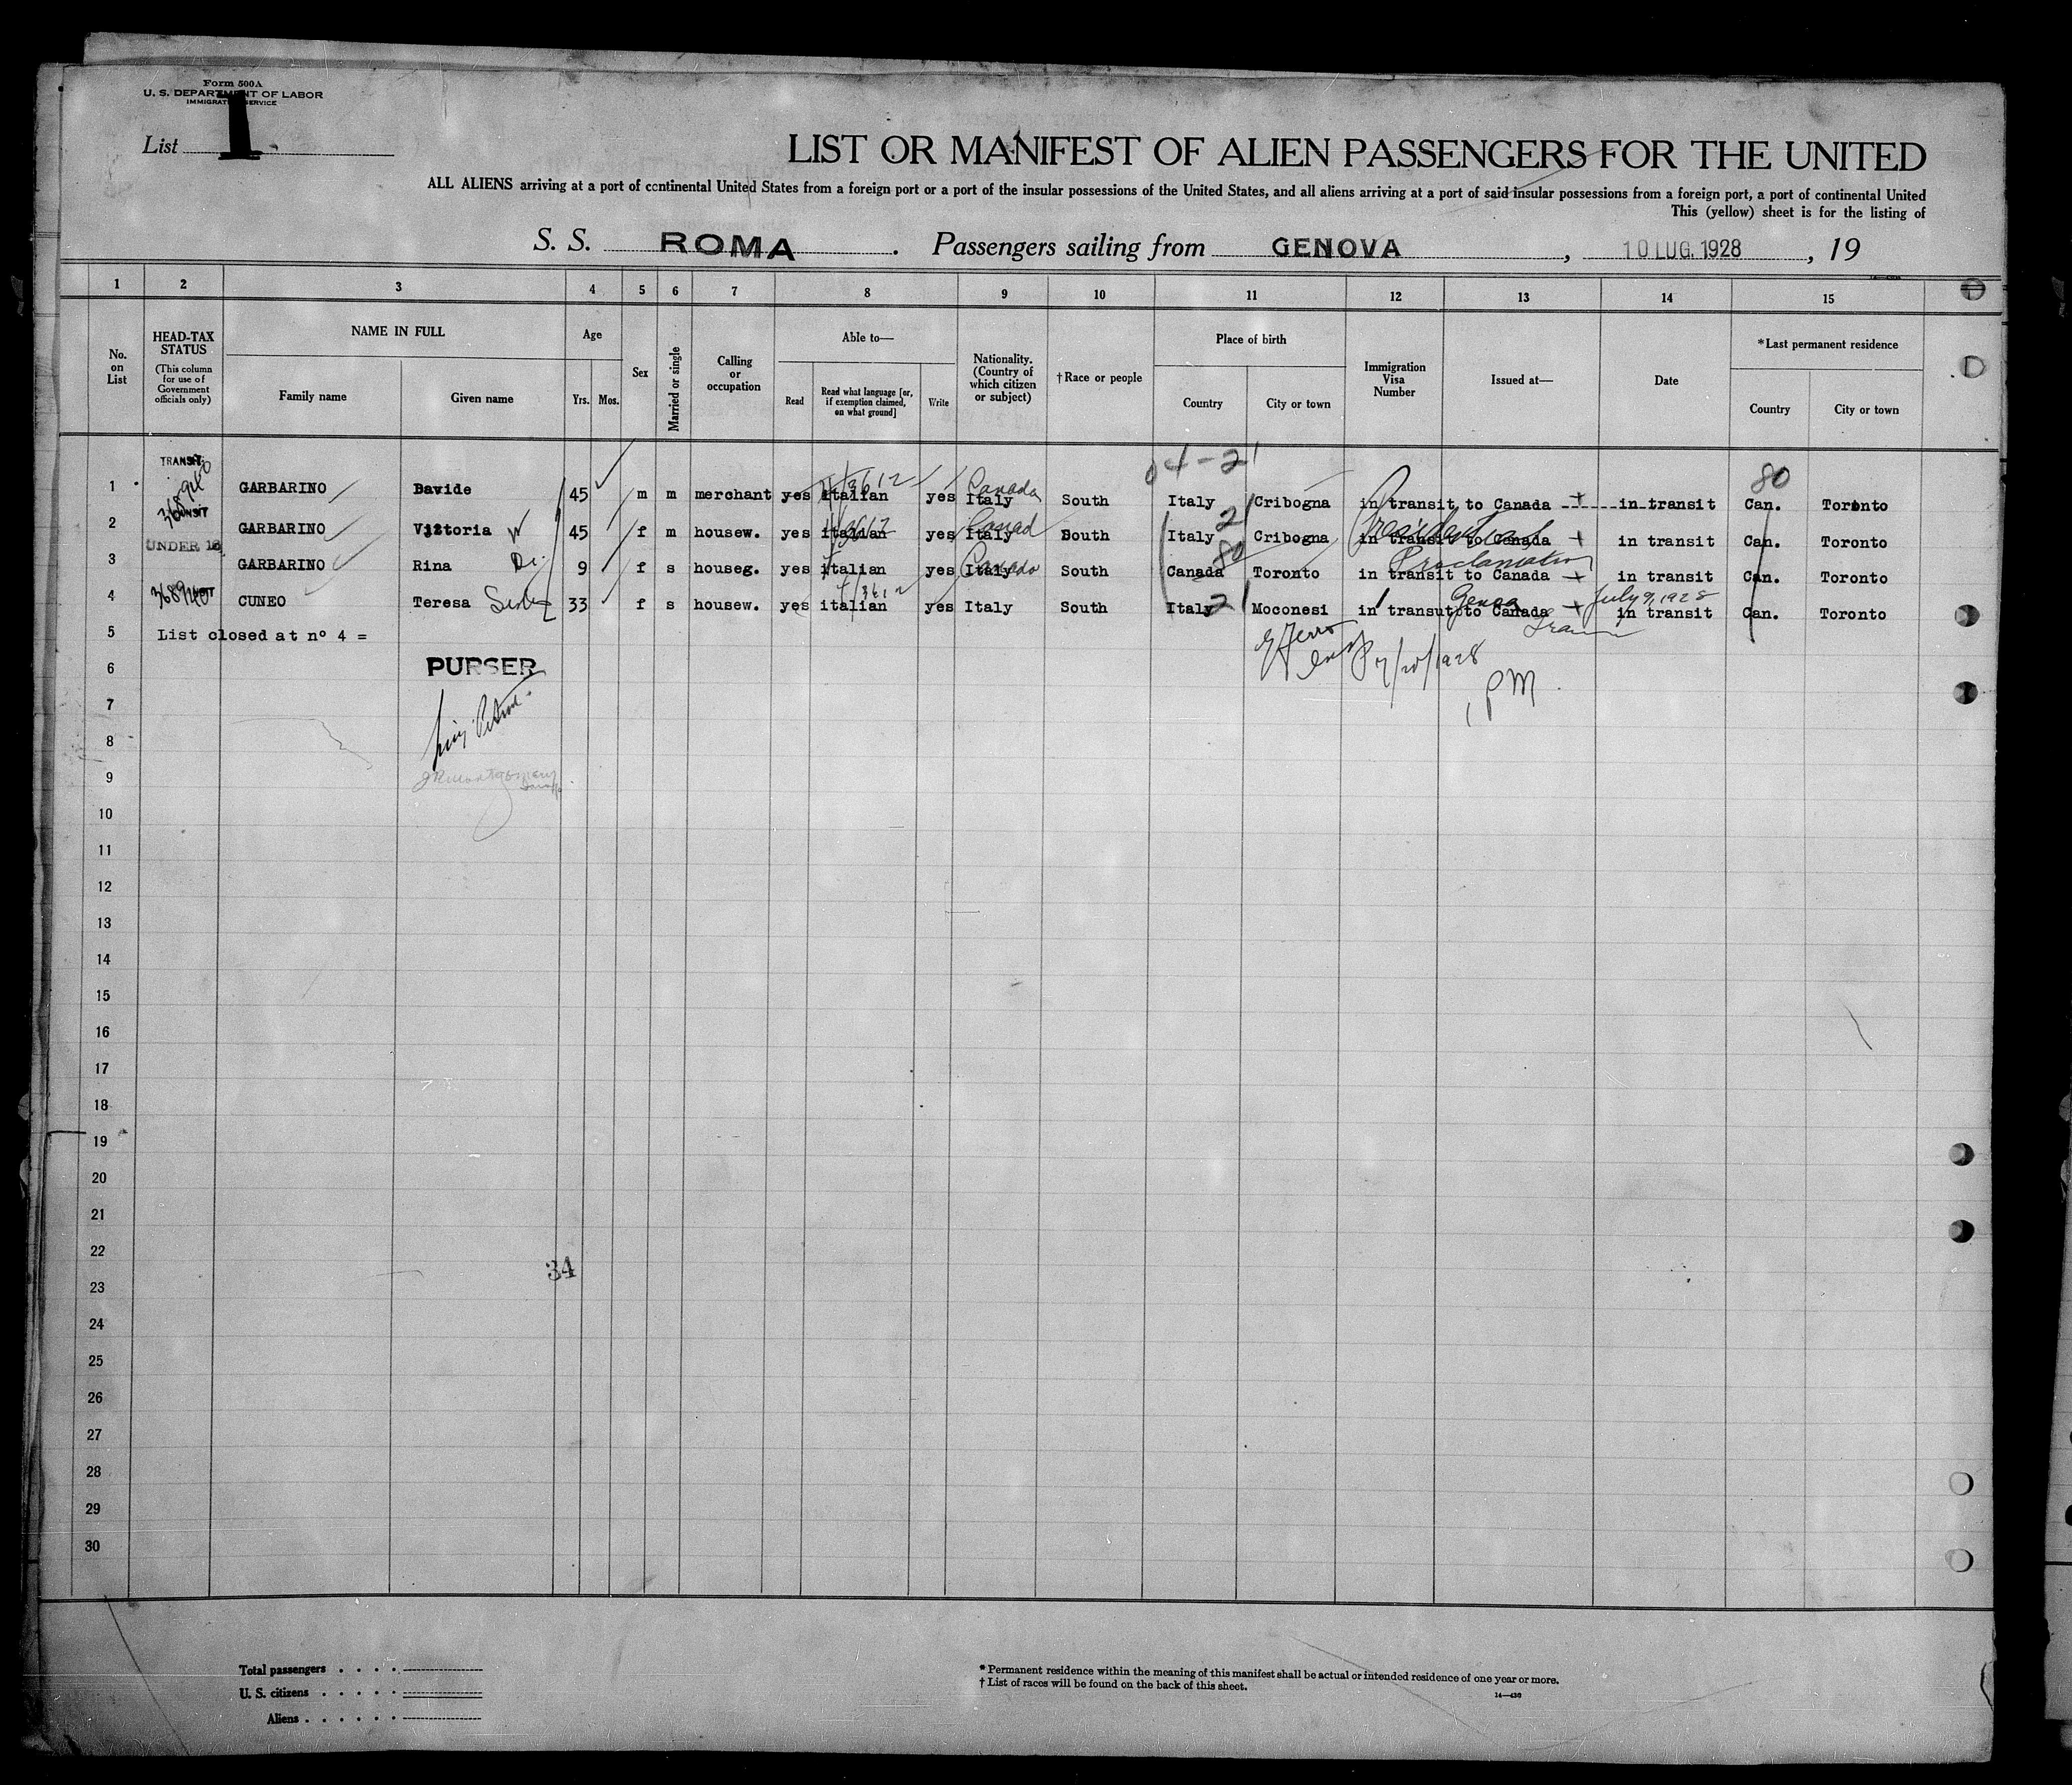 Form 500A
U. S. DEPARTMENT OF LABOR
IMMIGRATION SERVICE
List 1
LIST OR MANIFEST OF ALIEN PASSENGERS FOR THE UNITED
ALL ALIENS arriving at a port of continental United States from a foreign port or a port of the insular possessions of the United States, and all aliens arriving at a port of said insular possessions from a foreign port, a port of continental United
This (yellow) sheet is for the listing of
S. S. ROMA. Passengers sailing from GENOVA, 10 LUG. 1928, 19
1 2 3 4 5 6 7 8 9 10 11 12 13 14 15
No. on List
HEAD-TAX STATUS
(This column for use of Government officials only)
NAME IN FULL
Family name
Given name
Age
Yrs. Mos.
Sex
Married or single
Calling or occupation
Able to—
Read
Read what language [or, if exemption claimed, on what ground]
Write
Nationality. (Country of which citizen or subject)
†Race or people
Place of birth
Country
City or town
Immigration Visa Number
Issued at—
Date
*Last permanent residence
Country
City or town
04-2 80
TRANSIT
1 GARBARINO Davide 45 m m merchant yes italian 3612 yes Italy Canada South Italy Cribogna in transit to Canada in transit Can. Toronto
2 GARBARINO Vittoria W 45 f m housew. yes italian yes Italy Canad South Italy 2 Cribogna in transit to Canada in transit Can. Toronto
Presidential
UNDER 16
3 GARBARINO Rina 9 f s houseg. yes italian yes Italy Canada South Canada 80 Toronto in transit to Canada in transit Can. Toronto
Proclamation
4 CUNEO Teresa 33 f s housew. yes italian 3612 yes Italy South Italy 2 Moconesi in transut to Canada in transit Can. Toronto
Genoa July 9, 1928
5 List closed at nº 4 =
6 PURSER
7/20/1928
7
1 PM
8
9 JR Montgomery
10
11
12
13
14
15
16
17
18
19
20
21
22
34
23
24
25
26
27
28
29
30
Total passengers
U. S. citizens
Aliens
* Permanent residence within the meaning of this manifest shall be actual or intended residence of one year or more.
† List of races will be found on the back of this sheet.
14—430